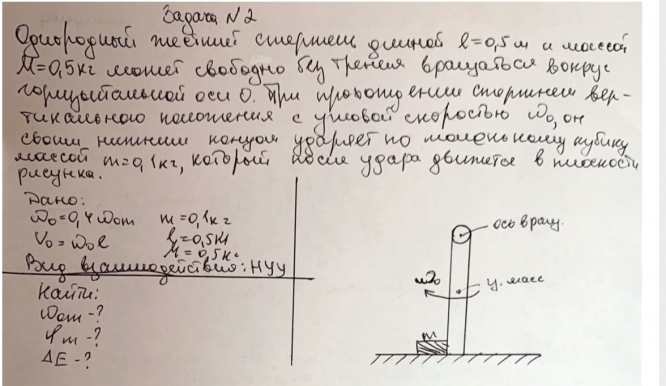 Задача N2
Однородный жесткий стержень длиной l=0,5м и массой
M=0,5кг может свободно без трения вращаться вокруг
горизонтальной оси О. При прохождении стержнем вер-
тикального положения с угловой скоростью ω₀, он
своим нижним концом ударяет по маленькому кубику
массой m=0,1кг, который после удара движется в плоскости
рисунка.
Дано:
ω₀=0,4ωom m=0,1кг
V₀=ω₀l l=0,5м
M=0,5кг
Вид взаимодействия: НУУ
Найти:
ωom-?
φm-?
ΔE-?
ось вращ.
ω₀
ц. масс
m